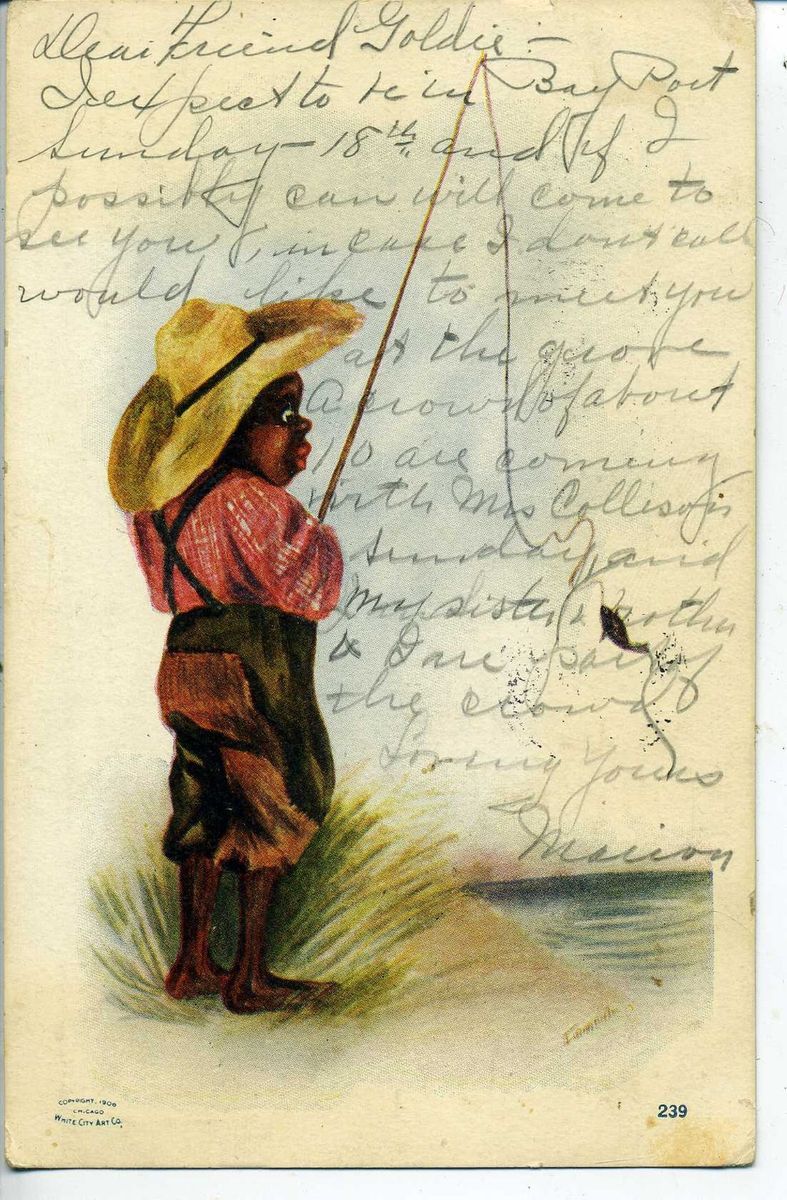 Dear Friend Goldie –
I expect to be in Bay Port
Sunday – 18th and if I
possibly can will come to
see you, in case I dont call
would like to meet you
at the grove
A crowd of about
10 are coming
with Mrs Collison
Sunday, and
My sister & brother
& I are part of
the crowd
Loving Yours
Marion
COPYRIGHT, 1906
CHICAGO
WHITE CITY ART CO.
239